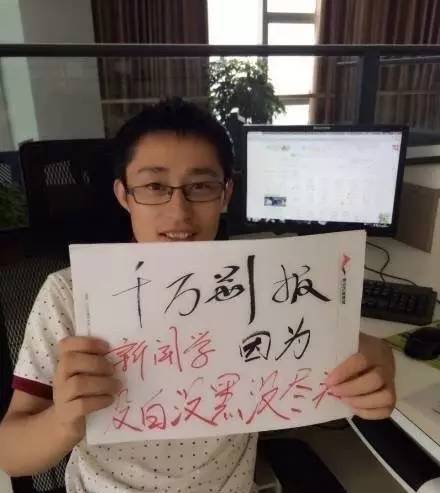 千万别报
新闻学 因为
没白没黑没尽头